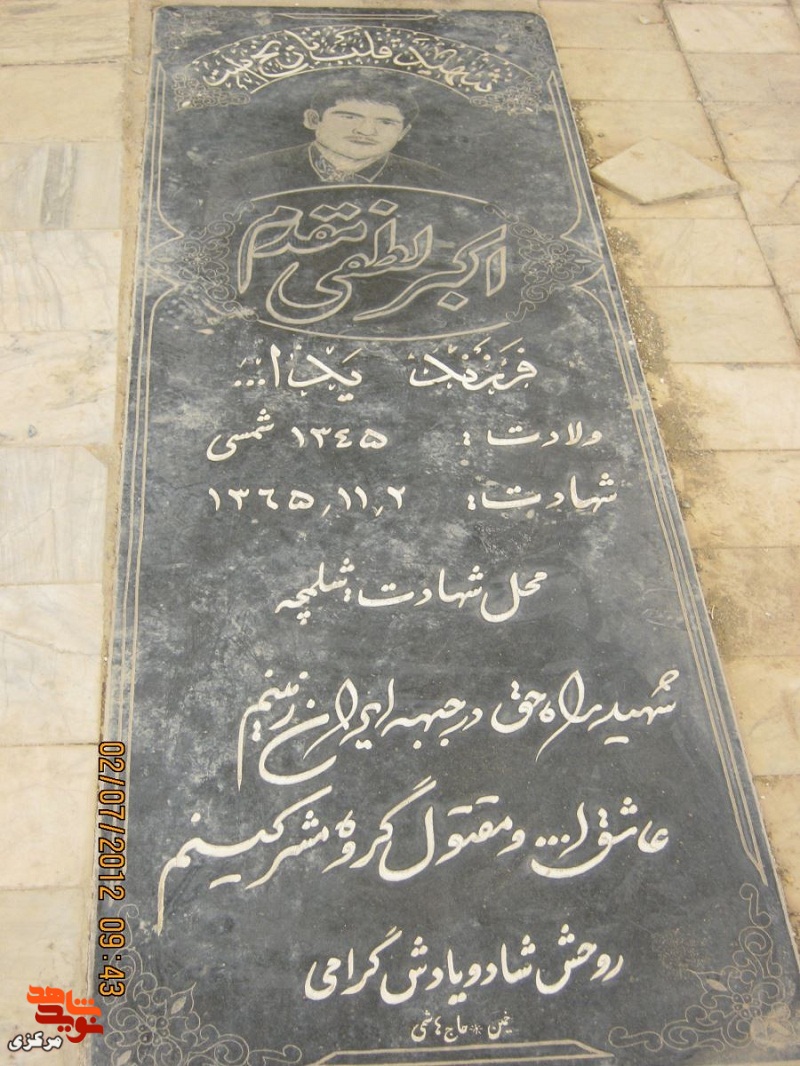 شهید قلب تاریخ است
اکبر لطفی مقدم
فرزند یدا...
ولادت: ۱۳۴۵ شمسی
شهادت: ۱۳۶۵,۱۱,۲
محل شهادت: شلمچه
شهید راه حق در جبهه ایران زمینم
عاشق ا... و مقتول گروه مشرکینم
روحش شاد و یادش گرامی
خمین * حاج هاشمی
02/07/2012 09:43
نوید شاهد
مرکزی